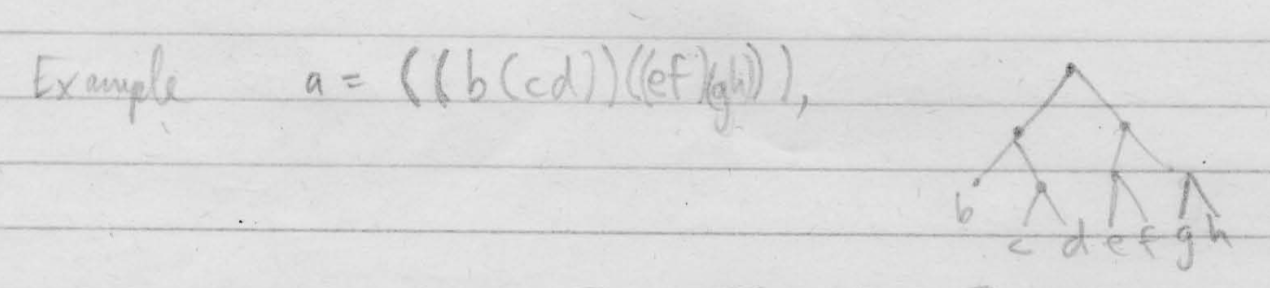 Example a = ((b(cd))((ef)(gh))),
b
c d e f g h